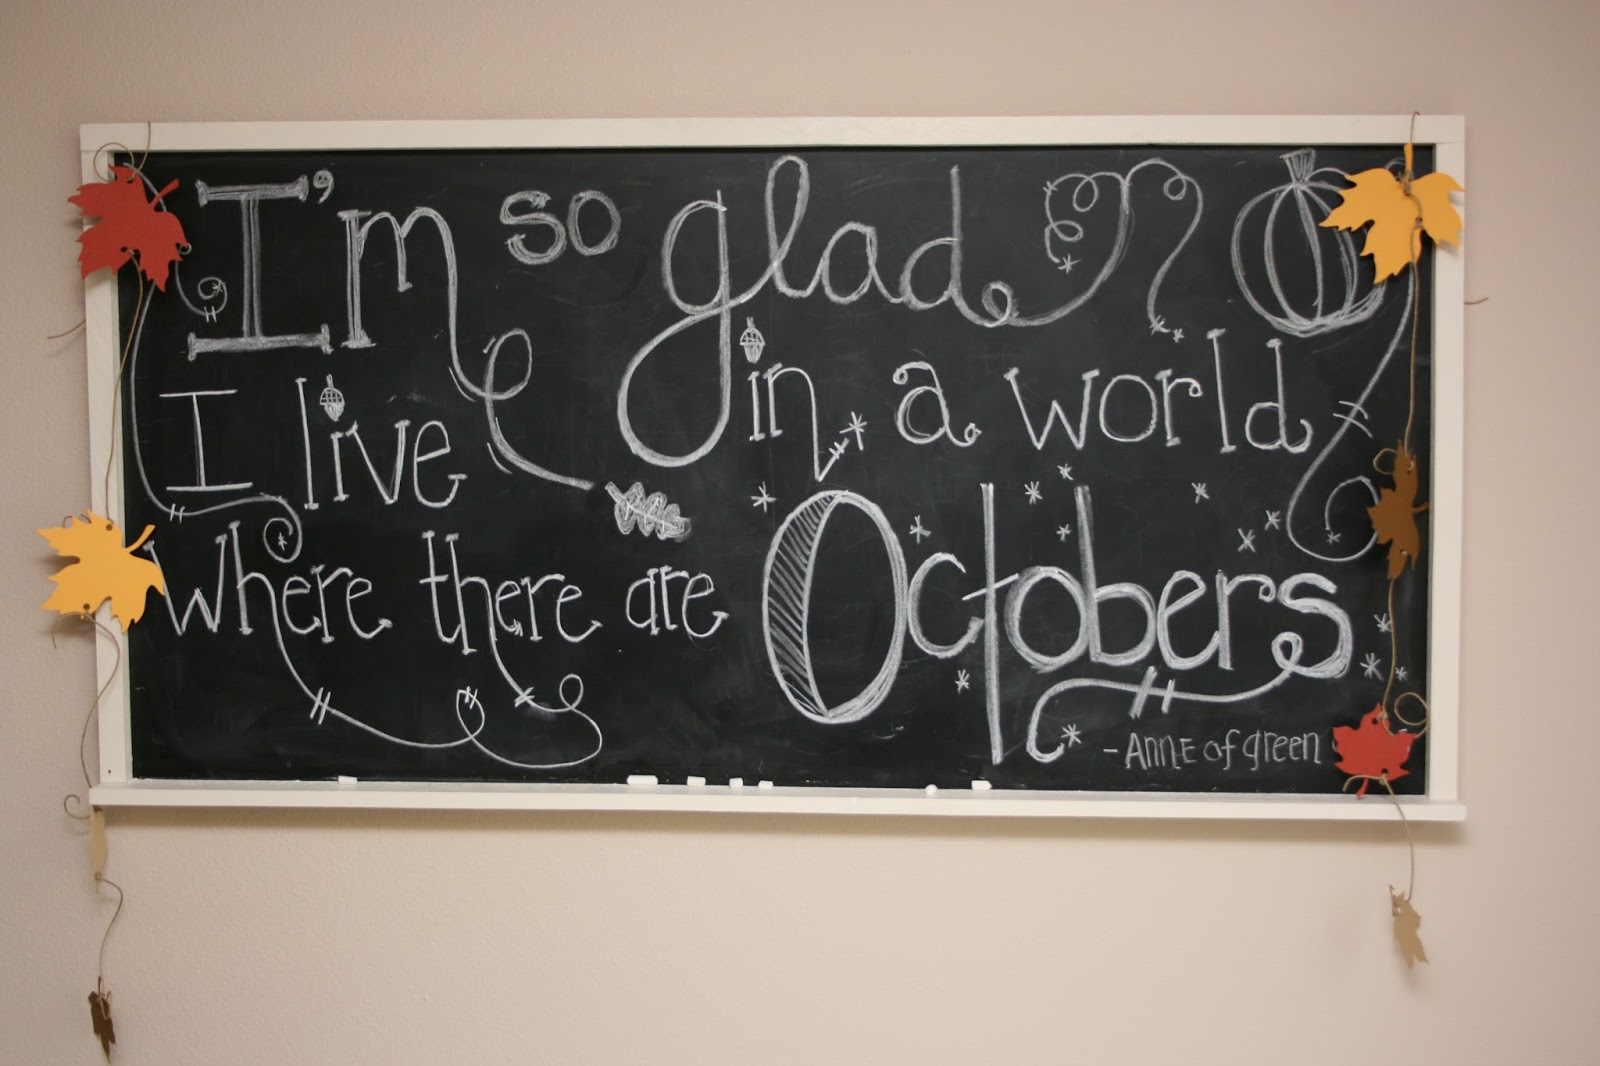 I'm so glad
I live in a world
where there are Octobers
- Anne of green